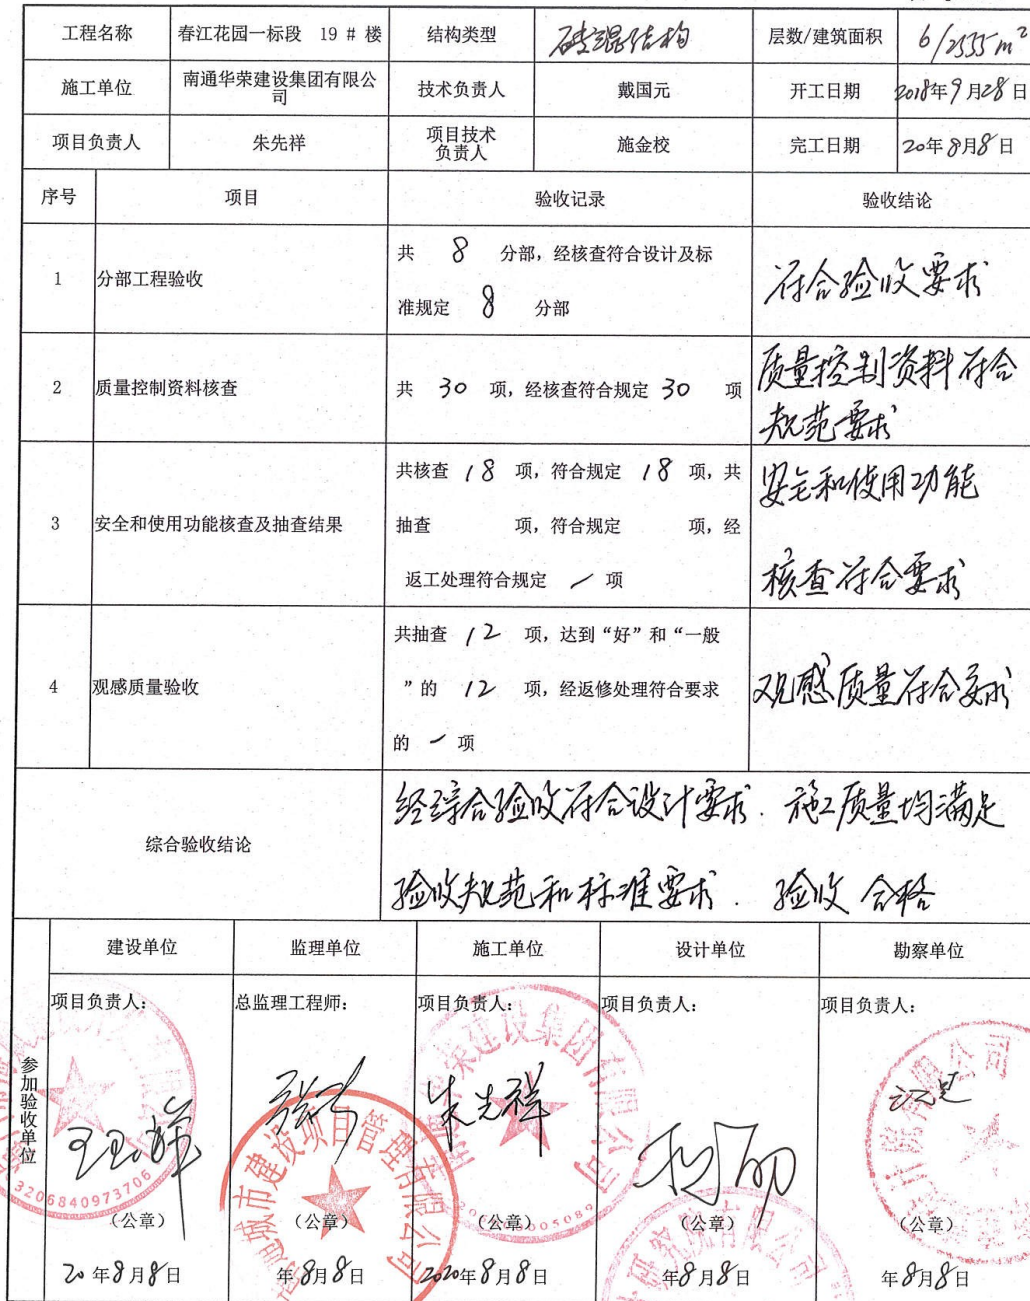 工程名称 春江花园一标段 19 # 楼 结构类型 砖混结构 层数/建筑面积 6/2555m²
施工单位 南通华荣建设集团有限公司 技术负责人 戴国元 开工日期 2018年9月28日
项目负责人 朱先祥 项目技术负责人 施金校 完工日期 20年8月8日
序号 项目 验收记录 验收结论
1 分部工程验收 共 8 分部，经核查符合设计及标
准规定 8 分部
符合验收要求
2 质量控制资料核查 共 30 项，经核查符合规定 30 项
质量控制资料符合
规范要求
3 安全和使用功能核查及抽查结果
共核查 18 项，符合规定 18 项，共
抽查 项，符合规定 项，经
返工处理符合规定 / 项
安全和使用功能
核查符合要求
4 观感质量验收
共抽查 12 项，达到“好”和“一般
”的 12 项，经返修处理符合要求
的 / 项
观感质量符合要求
综合验收结论
经综合验收符合设计要求. 施工质量均满足
验收规范和标准要求. 验收合格
参加验收单位
建设单位 监理单位 施工单位 设计单位 勘察单位
项目负责人： 总监理工程师： 项目负责人： 项目负责人： 项目负责人：
朱先祥
3206840973706
建设项目管理有限公司
（公章） （公章） （公章） （公章） （公章）
20年8月8日 年8月8日 2020年8月8日 年8月8日 年8月8日